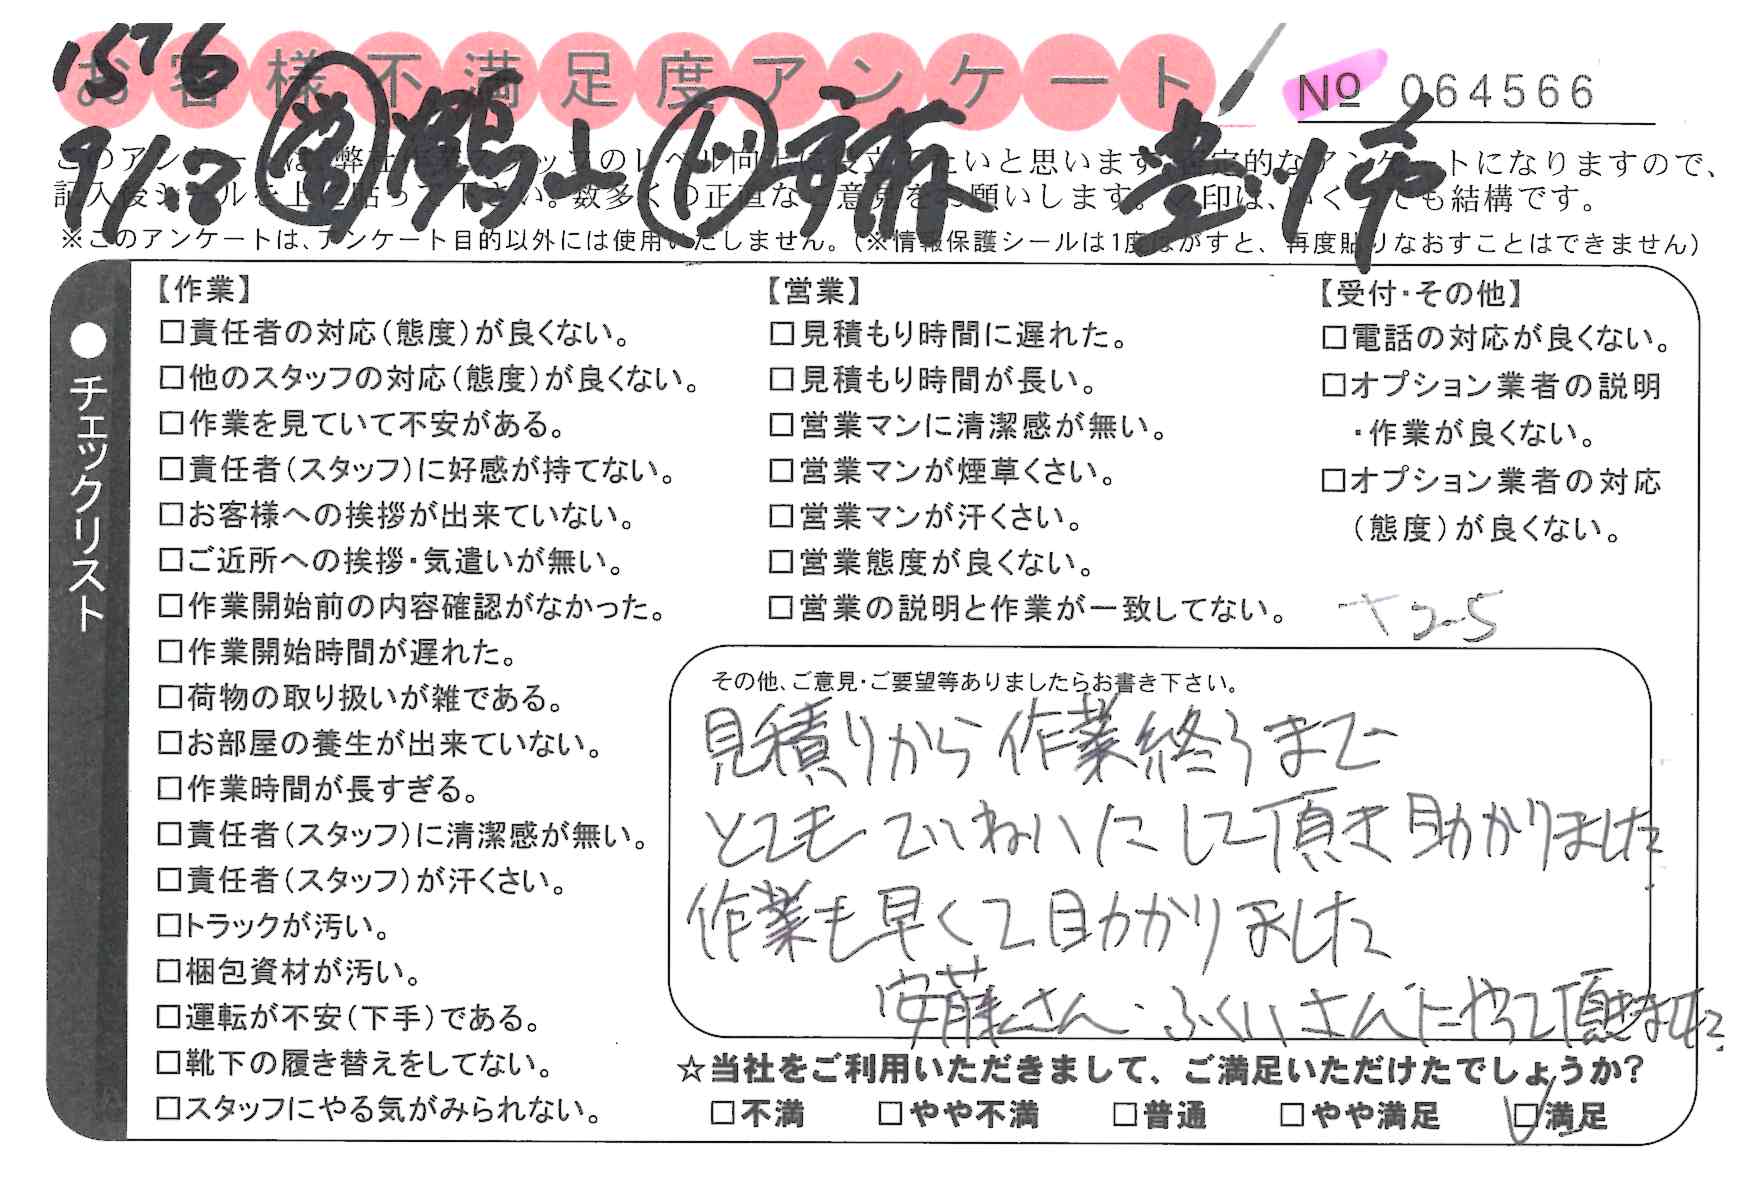 1576
お客様不満足度アンケート
№ 064566
9/12 営 鶴山 ド 斎
このアンケートは、弊社作業スタッフのレベル向上に役立てたいと思います。否定的なアンケートになりますので、
記入後シールを上に貼って下さい。数多くの正直なご意見をお願いします。✓印は、いくつでも結構です。
※このアンケートは、アンケート目的以外には使用いたしません。(※情報保護シールは1度はがすと、再度貼りなおすことはできません)
●チェックリスト
【作業】
□責任者の対応(態度)が良くない。
□他のスタッフの対応(態度)が良くない。
□作業を見ていて不安がある。
□責任者(スタッフ)に好感が持てない。
□お客様への挨拶が出来ていない。
□ご近所への挨拶・気遣いが無い。
□作業開始前の内容確認がなかった。
□作業開始時間が遅れた。
□荷物の取り扱いが雑である。
□お部屋の養生が出来ていない。
□作業時間が長すぎる。
□責任者(スタッフ)に清潔感が無い。
□責任者(スタッフ)が汗くさい。
□トラックが汚い。
□梱包資材が汚い。
□運転が不安(下手)である。
□靴下の履き替えをしてない。
□スタッフにやる気がみられない。
【営業】
□見積もり時間に遅れた。
□見積もり時間が長い。
□営業マンに清潔感が無い。
□営業マンが煙草くさい。
□営業マンが汗くさい。
□営業態度が良くない。
□営業の説明と作業が一致してない。
【受付・その他】
□電話の対応が良くない。
□オプション業者の説明
・作業が良くない。
□オプション業者の対応
(態度)が良くない。
その他、ご意見・ご要望等ありましたらお書き下さい。
見積りから作業終うまで
とてもていねいにして頂き助かりました
作業も早くて助かりました
安藤さん・ふくいさんにやって頂きました
☆当社をご利用いただきまして、ご満足いただけたでしょうか?
□不満 □やや不満 □普通 □やや満足 ☑満足